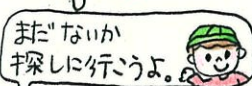 まだないか
探しに行こうよ。